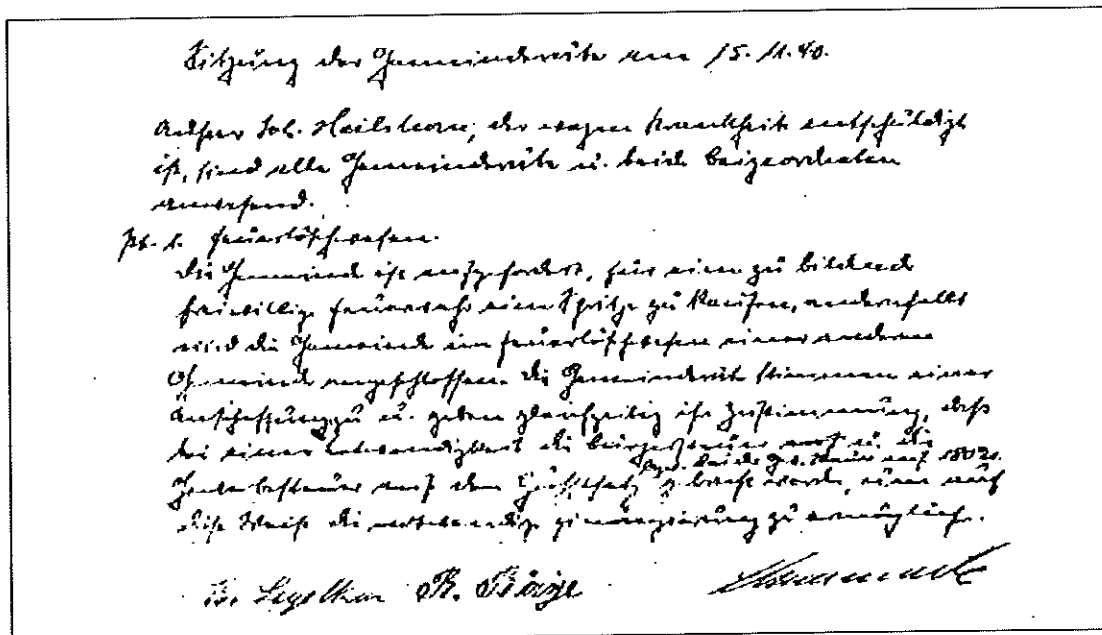 Sitzung der Gemeinderäte am 15.11.40.
Außer Joh. Heilshorn, der wegen Krankheit entschuldigt
ist, sind alle Gemeinderäte u. beide Beigeordneten
anwesend.
Pkt. 1. Feuerlöschwesen.
Die Gemeinde ist aufgefordert, für eine zu bildende
freiwillige Feuerwehr eine Spritze zu kaufen, andernfalls
wird die Gemeinde im Feuerlöschwesen einer anderen
Gemeinde angeschlossen. Die Gemeinderäte stimmen einer
Anschaffung zu u. geben gleichzeitig ihre Zustimmung, daß
bei einer Notwendigkeit die Bürgersteuer u. die
bei der auf 180%
steuer auf den Höchstsatz gebracht werde, um auf
diese Weise die notwendige Finanzierung zu ermöglichen.